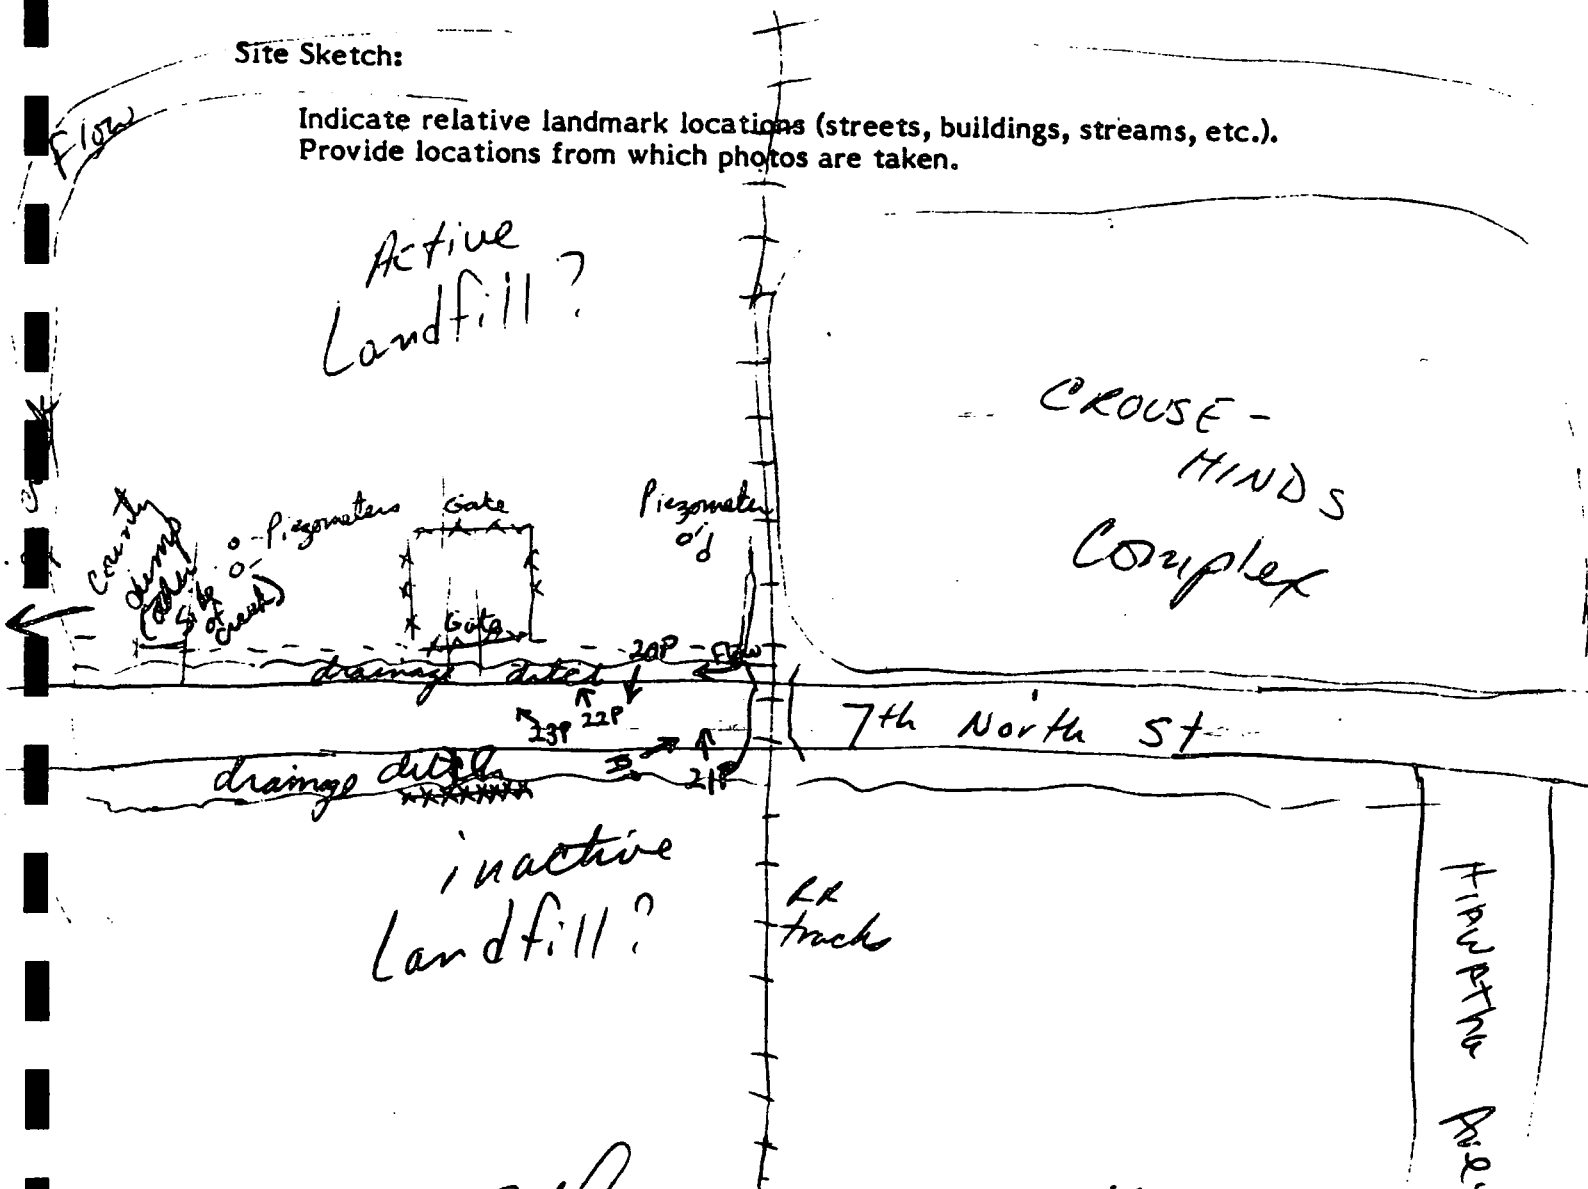 Site Sketch:
Indicate relative landmark locations (streets, buildings, streams, etc.).
Provide locations from which photos are taken.
Flow
Active
Landfill?
CROUSE-
HINDS
Complex
County
dump
(other
side
of
creek)
Piezometers
Gate
Piezometer
Gate
20P
Flow
drainage ditch
22P
23P
7th North St
21P
drainage ditch
inactive
Landfill?
RR
tracks
HIAWATHA